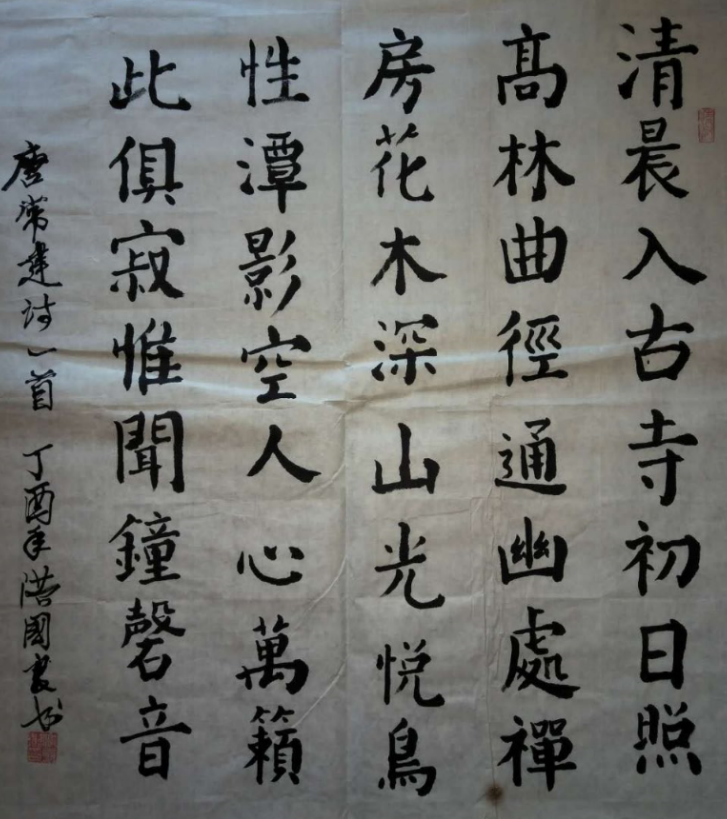 清晨入古寺初日照
髙林曲徑通幽處禪
房花木深山光悦鳥
性潭影空人心萬籟
此俱寂惟聞鐘磬音
唐常建诗一首 丁酉年國书